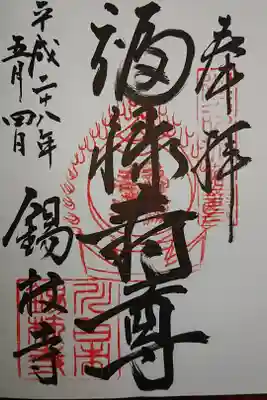 奉拝
福禄寿尊
錫杖寺
平成二十八年
五月四日